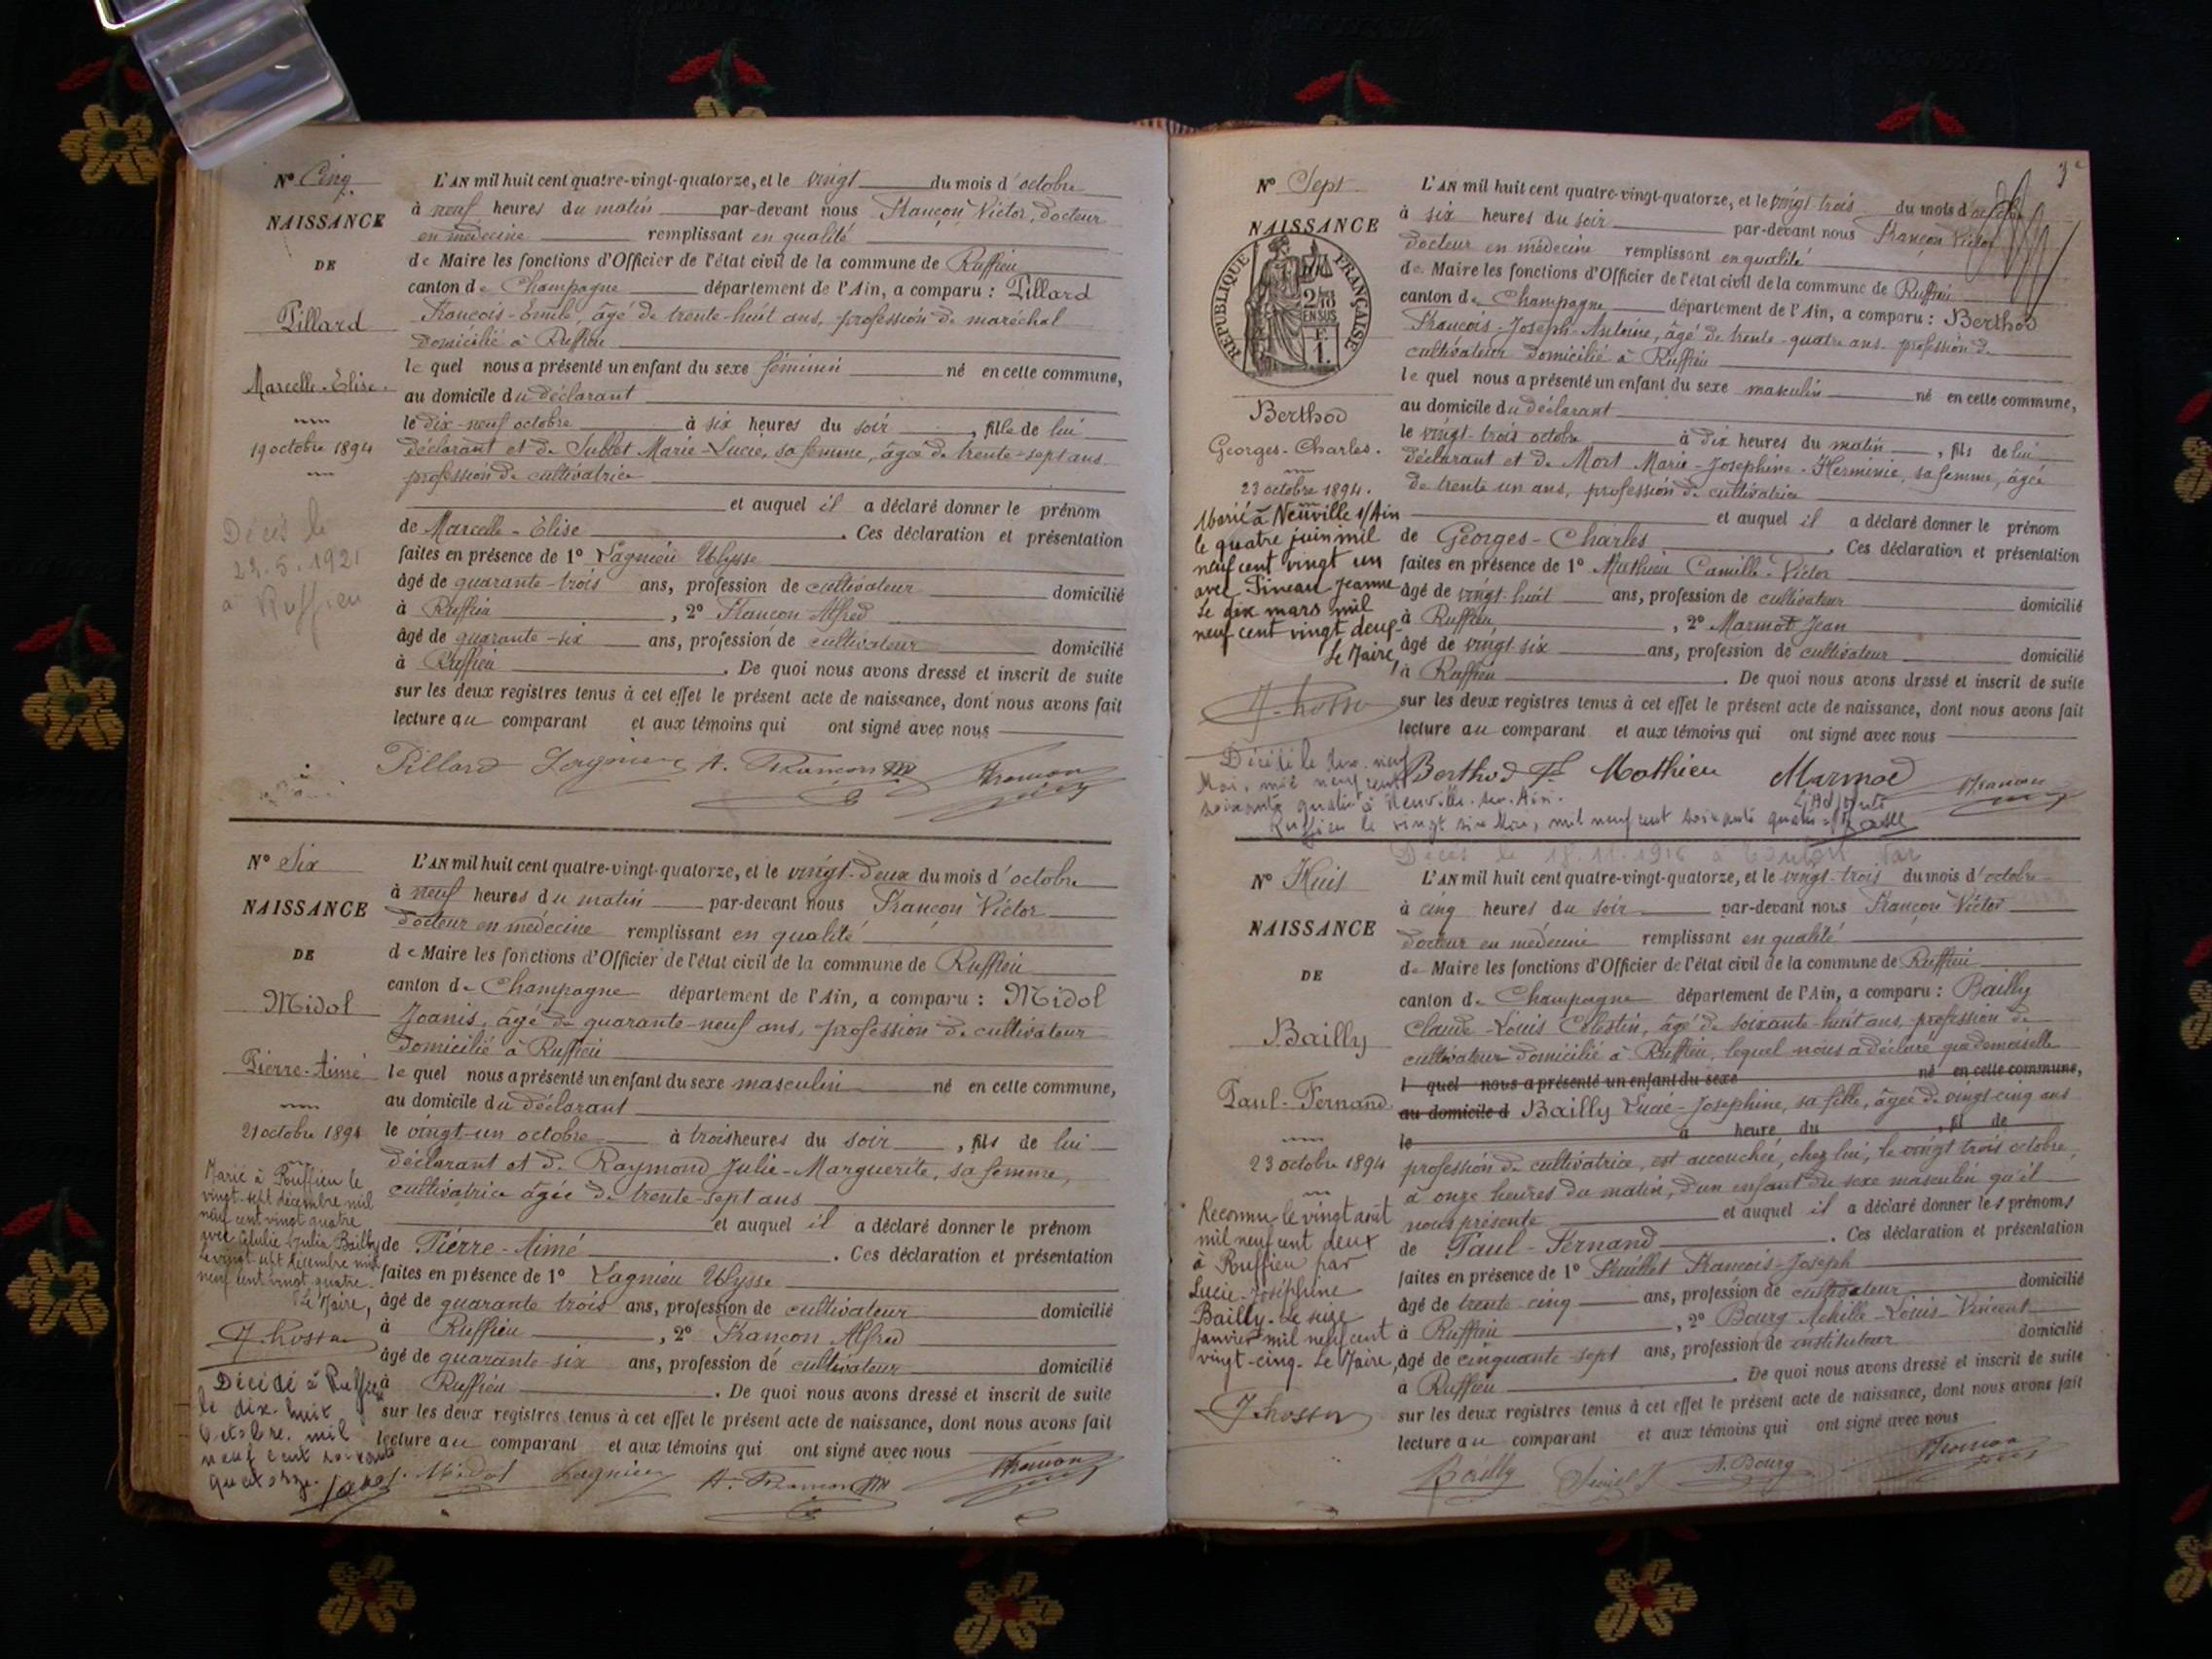 N° Cinq
NAISSANCE
DE
Pillard
Marcelle-Elise.
19 octobre 1894
Décès le
à Ruffieu
L'AN mil huit cent quatre-vingt-quatorze, et le vingt du mois d'octobre
à neuf heures du matin par-devant nous Françon Victor, docteur
en médecine remplissant en qualité
de Maire les fonctions d'Officier de l'état civil de la commune de Ruffieu
canton de Champagne département de l'Ain, a comparu : Pillard
François-Emile, âgé de trente-huit ans, profession de maréchal
domicilié à Ruffieu
le quel nous a présenté un enfant du sexe féminin né en cette commune,
au domicile du déclarant
le dix-neuf octobre à six heures du soir, fille de lui
déclarant et de Sublet Marie-Lucie, sa femme, âgée de trente-sept ans
profession de cultivatrice
et auquel il a déclaré donner le prénom
de Marcelle-Elise. Ces déclaration et présentation
faites en présence de 1° Lagnieu Ulysse
âgé de quarante-trois ans, profession de cultivateur domicilié
à Ruffieu, 2° Françon Alfred
âgé de quarante-six ans, profession de cultivateur domicilié
à Ruffieu. De quoi nous avons dressé et inscrit de suite
sur les deux registres tenus à cet effet le présent acte de naissance, dont nous avons fait
lecture au comparant et aux témoins qui ont signé avec nous
Pillard Lagnieu A. Françon Françon
N° Six
NAISSANCE
DE
Midol
Pierre-Aimé
21 octobre 1894
Marié à Ruffieu le
vingt-sept décembre mil
neuf cent vingt quatre
avec Julia Bailly
le vingt-sept décembre mil
neuf cent vingt quatre.
Le Maire,
Décédé à Ruffieu
le dix-huit
octobre mil
neuf cent soixante
quatorze.
L'AN mil huit cent quatre-vingt-quatorze, et le vingt-deux du mois d'octobre
à neuf heures du matin par-devant nous Françon Victor
docteur en médecine remplissant en qualité
de Maire les fonctions d'Officier de l'état civil de la commune de Ruffieu
canton de Champagne département de l'Ain, a comparu : Midol
Joanis, âgé de quarante-neuf ans, profession de cultivateur
domicilié à Ruffieu
le quel nous a présenté un enfant du sexe masculin né en cette commune,
au domicile du déclarant
le vingt-un octobre à trois heures du soir, fils de lui
déclarant et de Raymond Julie-Marguerite, sa femme,
cultivatrice âgée de trente-sept ans
et auquel il a déclaré donner le prénom
de Pierre-Aimé. Ces déclaration et présentation
faites en présence de 1° Lagnieu Ulysse
âgé de quarante trois ans, profession de cultivateur domicilié
à Ruffieu, 2° Françon Alfred
âgé de quarante-six ans, profession de cultivateur domicilié
à Ruffieu. De quoi nous avons dressé et inscrit de suite
sur les deux registres tenus à cet effet le présent acte de naissance, dont nous avons fait
lecture au comparant et aux témoins qui ont signé avec nous
J. Midol Lagnieu A. Françon Françon
3e
N° Sept
NAISSANCE
RÉPUBLIQUE FRANÇAISE
2/10 EN SUS
F. 1.
Berthod
Georges-Charles.
23 octobre 1894.
Marié à Neuville s/Ain
le quatre juin mil
neuf cent vingt un
avec Pineau Jeanne
Le dix mars mil
neuf cent vingt deux
Le Maire,
Décédé le dix-neuf
Mai, mil neuf cent
soixante quatre à Neuville-sur-Ain.
Ruffieu le vingt six Mai, mil neuf cent soixante quatre
L'Adjoint
L'AN mil huit cent quatre-vingt-quatorze, et le vingt trois du mois d'octobre
à six heures du soir par-devant nous Françon Victor
docteur en médecine remplissant en qualité
de Maire les fonctions d'Officier de l'état civil de la commune de Ruffieu
canton de Champagne département de l'Ain, a comparu : Berthod
François-Joseph-Antoine, âgé de trente-quatre ans, profession de
cultivateur domicilié à Ruffieu
le quel nous a présenté un enfant du sexe masculin né en cette commune,
au domicile du déclarant
le vingt-trois octobre à dix heures du matin, fils de lui
déclarant et de Mort Marie-Josephine-Herminie, sa femme, âgée
de trente un ans, profession de cultivatrice
et auquel il a déclaré donner le prénom
de Georges-Charles. Ces déclaration et présentation
faites en présence de 1° Mathieu Camille-Victor
âgé de vingt-huit ans, profession de cultivateur domicilié
à Ruffieu, 2° Marmod Jean
âgé de vingt-six ans, profession de cultivateur domicilié
à Ruffieu. De quoi nous avons dressé et inscrit de suite
sur les deux registres tenus à cet effet le présent acte de naissance, dont nous avons fait
lecture au comparant et aux témoins qui ont signé avec nous
Berthod Mathieu Marmod Françon
Décès le 18.11.1916 à Toulon Var
N° Huit
NAISSANCE
DE
Bailly
Paul-Fernand
23 octobre 1894
Reconnu le vingt août
mil neuf cent deux
à Ruffieu par
Lucie-Joséphine
Bailly. Le seize
janvier mil neuf cent
vingt-cinq. Le Maire,
L'AN mil huit cent quatre-vingt-quatorze, et le vingt-trois du mois d'octobre
à cinq heures du soir par-devant nous Françon Victor
docteur en médecine remplissant en qualité
de Maire les fonctions d'Officier de l'état civil de la commune de Ruffieu
canton de Champagne département de l'Ain, a comparu : Bailly
Claude-Louis Célestin, âgé de soixante-huit ans, profession de
cultivateur domicilié à Ruffieu, lequel nous a déclaré que demoiselle
l quel nous a présenté un enfant du sexe né en cette commune,
au domicile d Bailly Lucie-Josephine, sa fille, âgée de vingt-cinq ans
le à heure du, fil de
profession de cultivatrice, est accouchée, chez lui, le vingt trois octobre,
à onze heures du matin, d'un enfant du sexe masculin qu'il
nous présente et auquel il a déclaré donner les prénoms
de Paul-Fernand. Ces déclaration et présentation
faites en présence de 1° Feuillet François-Joseph
âgé de trente-cinq ans, profession de cultivateur domicilié
à Ruffieu, 2° Bourg Achille-Louis-Vincent
âgé de cinquante-sept ans, profession de instituteur domicilié
à Ruffieu. De quoi nous avons dressé et inscrit de suite
sur les deux registres tenus à cet effet le présent acte de naissance, dont nous avons fait
lecture au comparant et aux témoins qui ont signé avec nous
Bailly A. Bourg Françon